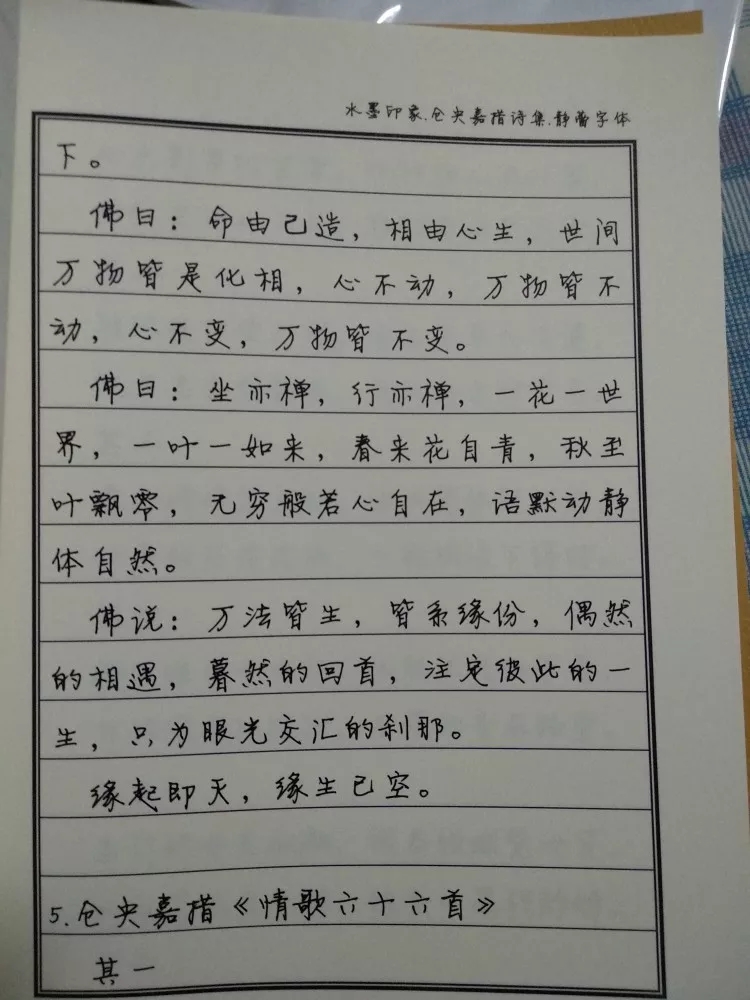 水墨印象.仓央嘉措诗集.静蕾字体
下。
佛曰：命由己造，相由心生，世间
万物皆是化相，心不动，万物皆不
动，心不变，万物皆不变。
佛曰：坐亦禅，行亦禅，一花一世
界，一叶一如来，春来花自青，秋至
叶飘零，无穷般若心自在，语默动静
体自然。
佛说：万法皆生，皆系缘份，偶然
的相遇，暮然的回首，注定彼此的一
生，只为眼光交汇的刹那。
缘起即灭，缘生已空。
5.仓央嘉措《情歌六十六首》
其一